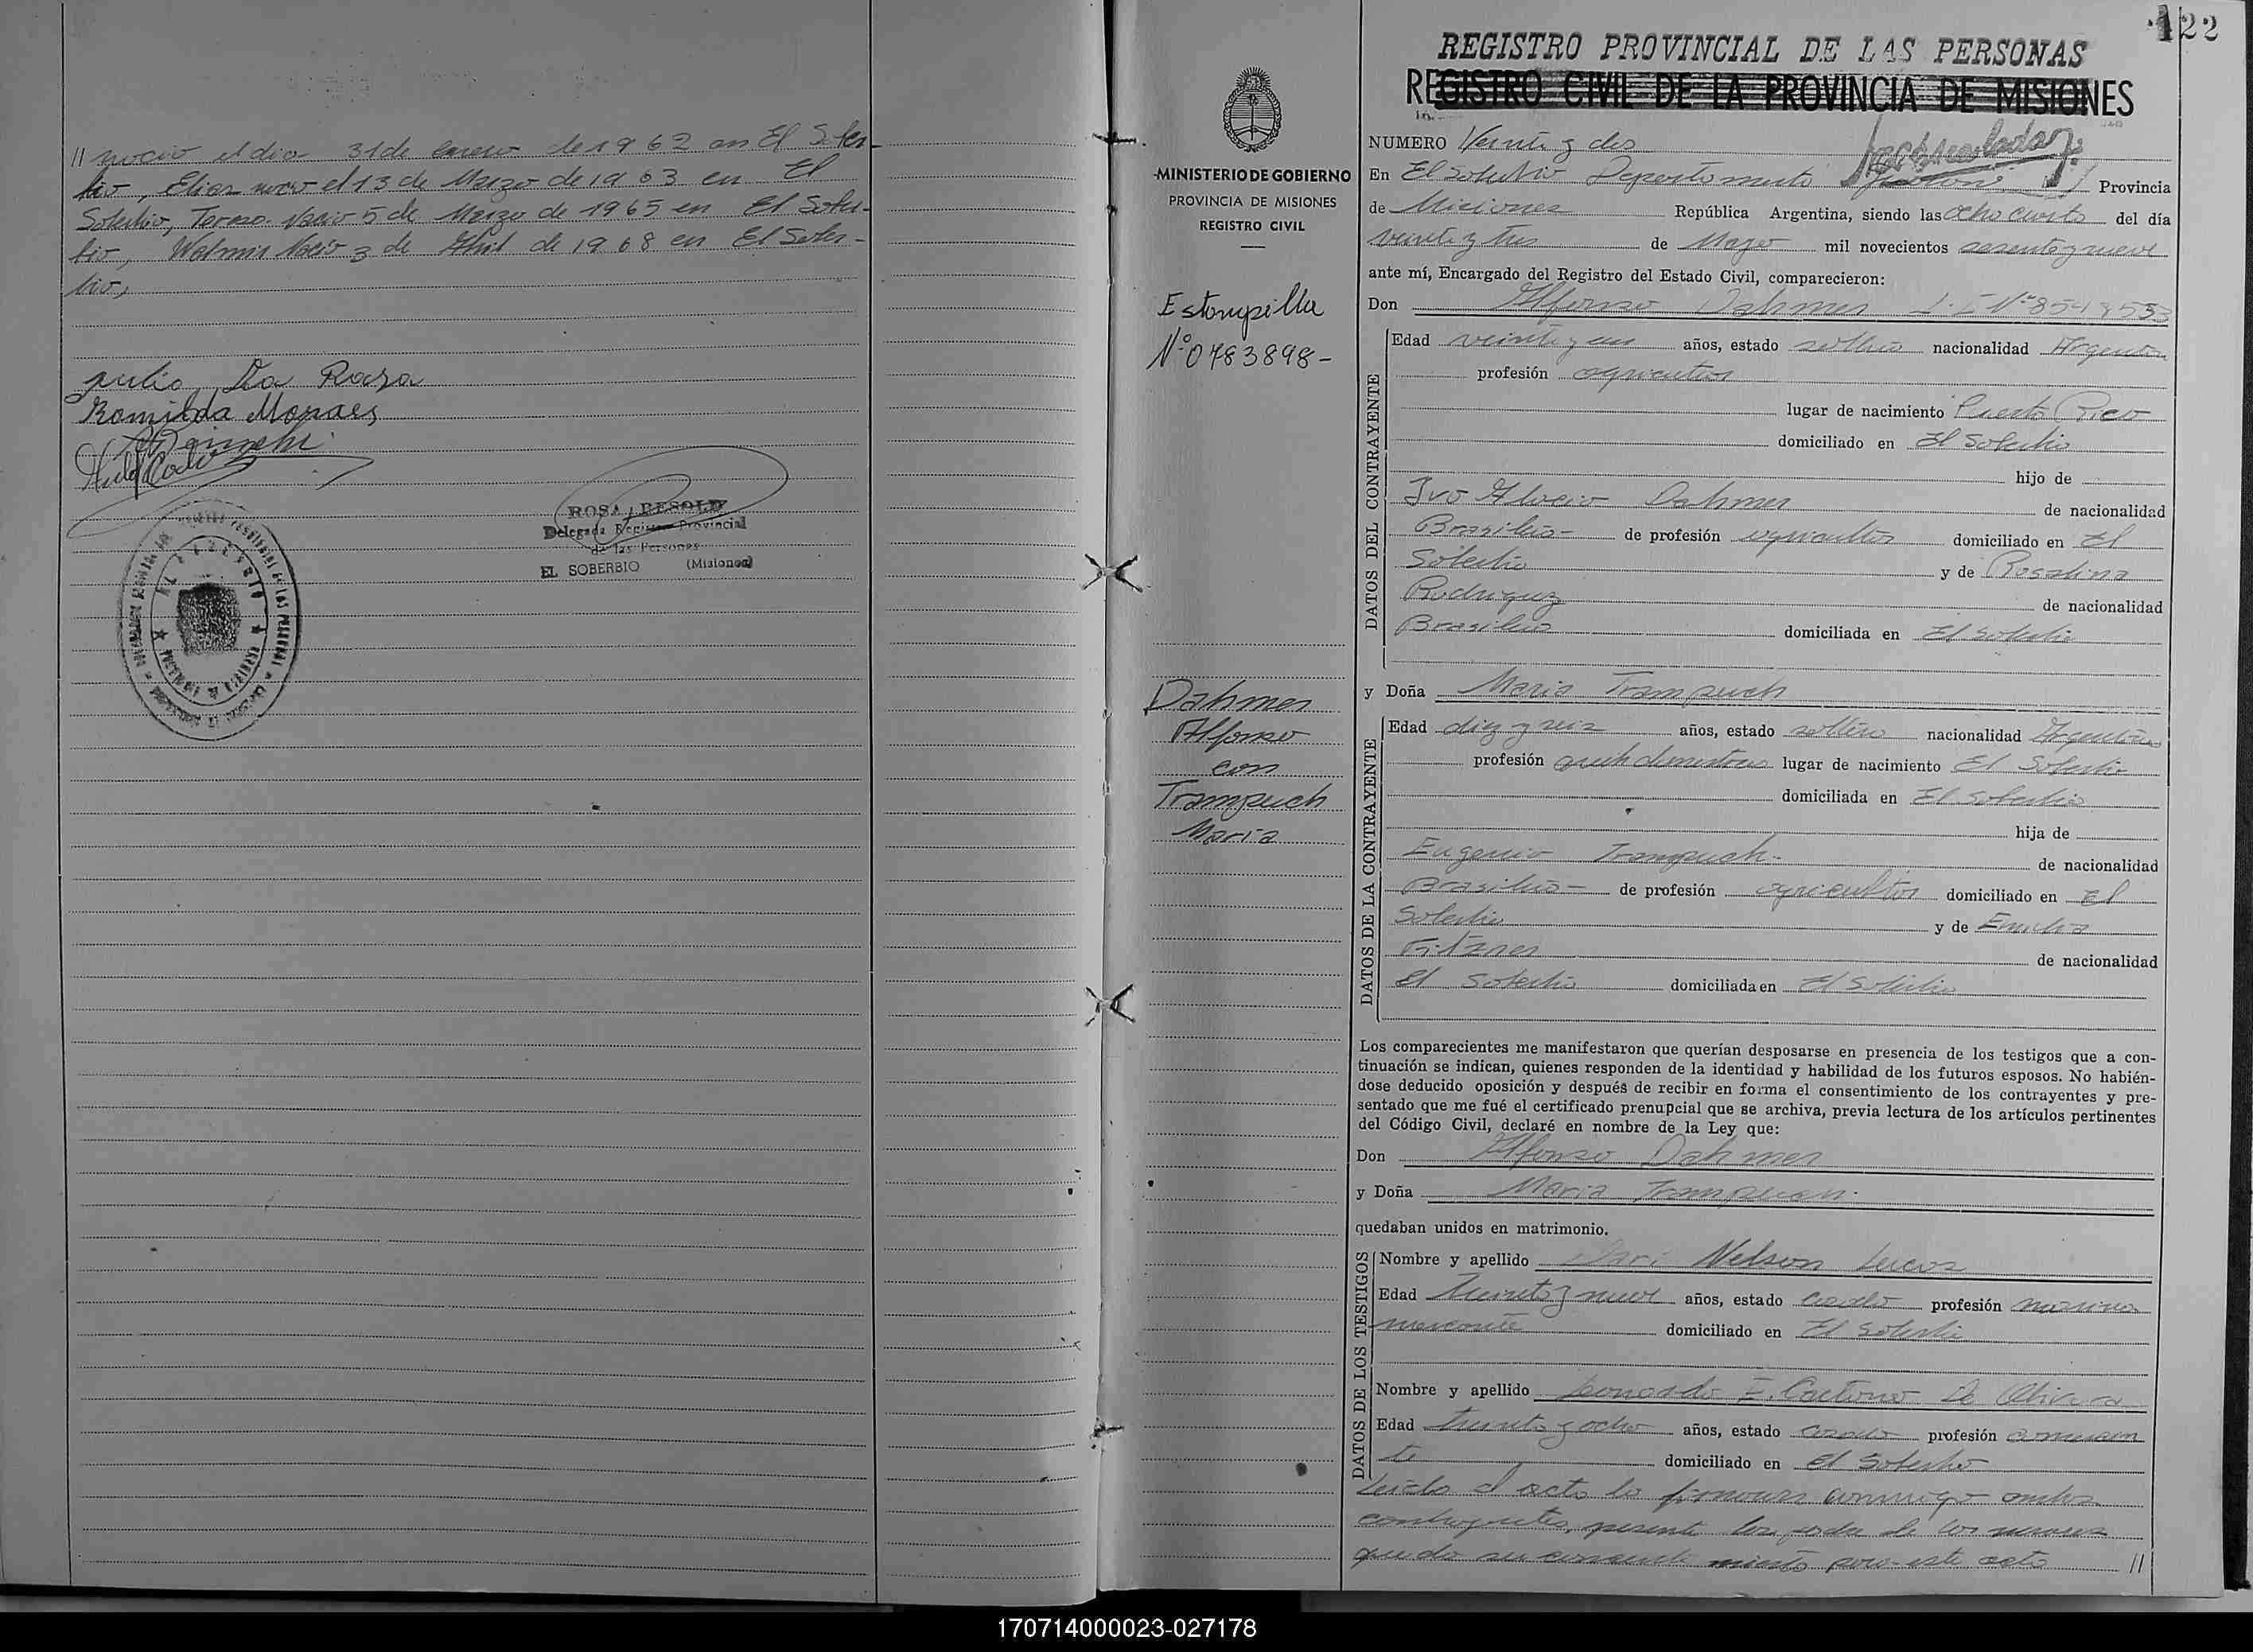 // nacio el dia 31 de enero de 1962 en El Sober-
bio, Elias nacio el 13 de Marzo de 1963 en El
Soberbio, Tereza Nacio 5 de Marzo de 1965 en El Sober-
bio, Walmir Nacio 3 de Abril de 1968 en El Sober-
bio,
julio Da Rosa
Romilda Moraes
ROSA RESOLD
Delegada Registro Provincial
de las Personas
EL SOBERBIO (Misiones)
122
REGISTRO PROVINCIAL DE LAS PERSONAS
REGISTRO CIVIL DE LA PROVINCIA DE MISIONES
MINISTERIO DE GOBIERNO
PROVINCIA DE MISIONES
REGISTRO CIVIL
Estampilla
Nº 0783898-
Dahmer
Alfonso
con
Trampuch
Maria
NUMERO Veinte y dos
En El Soberbio Departamento Provincia
de Misiones República Argentina, siendo las ocho cuarto del día
veinte y tres de Mayo mil novecientos sesenta y nueve
ante mí, Encargado del Registro del Estado Civil, comparecieron:
Don Alfonso Dahmer L. E Nº 8548553
DATOS DEL CONTRAYENTE
Edad veinte y un años, estado soltero nacionalidad Argentina
profesión agricultor
lugar de nacimiento Puerto Rico
domiciliado en El Soberbio
hijo de
Ivo Alocio Dahmer de nacionalidad
Brasileña- de profesión agricultor domiciliado en El
Soberbio y de Rosalina
Rodriguez de nacionalidad
Brasileña domiciliada en El Soberbio
y Doña Maria Trampuch
DATOS DE LA CONTRAYENTE
Edad diez y seis años, estado soltera nacionalidad Argentina
profesión lugar de nacimiento El Soberbio
domiciliada en El Soberbio
hija de
Eugenio Trampuch- de nacionalidad
Brasileña- de profesión agricultor domiciliado en El
Soberbio y de Emilia
Fitzner de nacionalidad
El Soberbio domiciliada en El Soberbio
Los comparecientes me manifestaron que querían desposarse en presencia de los testigos que a con-
tinuación se indican, quienes responden de la identidad y habilidad de los futuros esposos. No habién-
dose deducido oposición y después de recibir en forma el consentimiento de los contrayentes y pre-
sentado que me fué el certificado prenupcial que se archiva, previa lectura de los artículos pertinentes
del Código Civil, declaré en nombre de la Ley que:
Don Alfonso Dahmer
y Doña Maria Trampuch.
quedaban unidos en matrimonio.
DATOS DE LOS TESTIGOS
Nombre y apellido Dari Nelson Lucas
Edad treinta y nueve años, estado casado profesión marino
mercante domiciliado en El Soberbio
Nombre y apellido Leonardo E. Caetano De Olivera
Edad treinta y ocho años, estado casado profesión comercian
te domiciliado en El Soberbio
Leida el acta la firmaron conmigo ambos
contrayentes, presente los padres de los menores
que da su consentimiento para este acto //
170714000023-027178